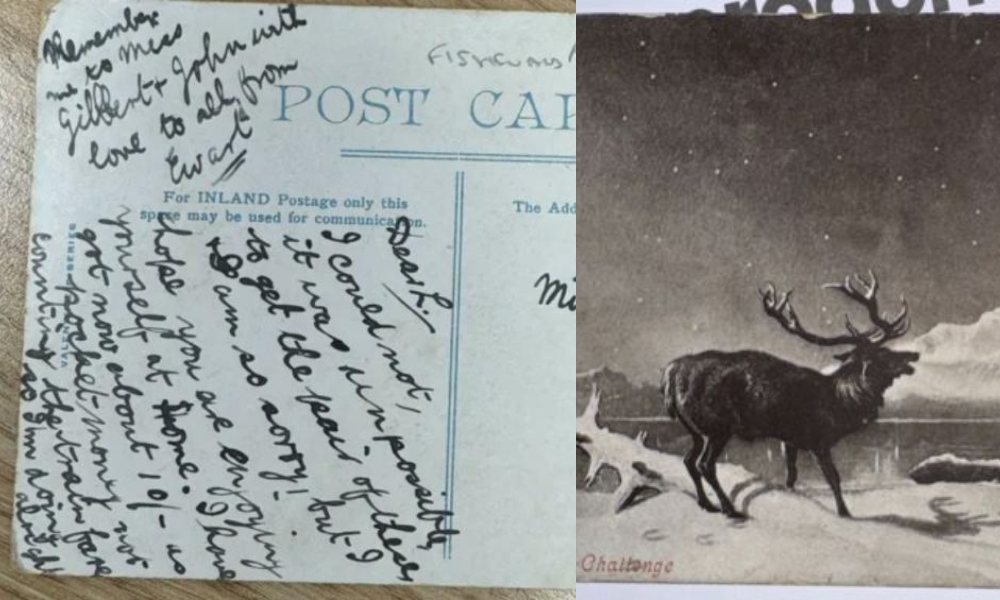 Remember
me to Miss
Gilbert + John with
love to all, from
Ewart
POST CAR
For INLAND Postage only this
space may be used for communication.
The Add
Dear L.
I could not,
it was impossible,
to get the pair of these
but I
am so sorry!
hope you are enjoying
yourself at Home. I have
got now about 10/- as
pocket-money not
counting the train fare
so I'm doing
alright
Mi
Challenge